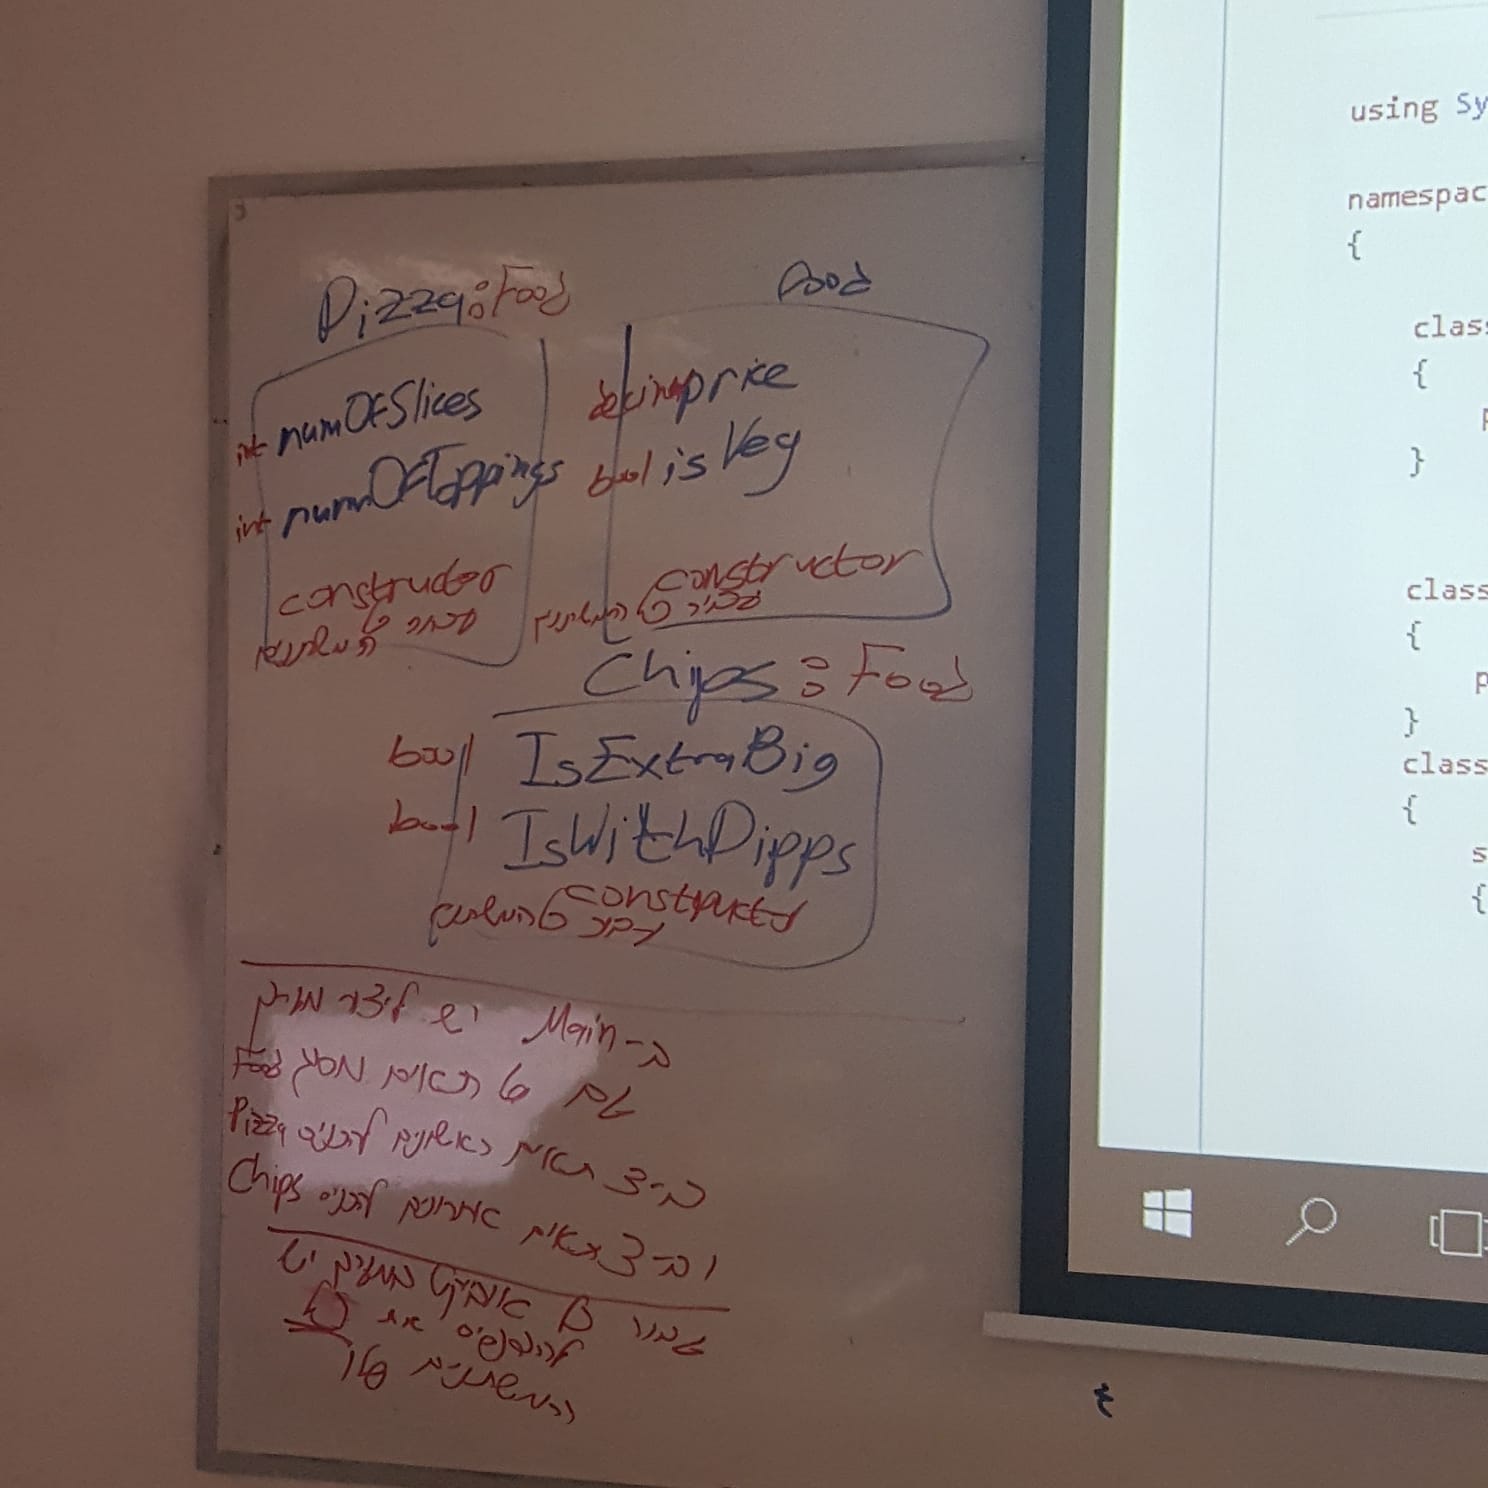 Pizza:Food
int numOfSlices
int numOfToppings
constructor
שמגדיר
כל המשתנים
Food
decimal price
bool isVeg
constructor
מגדיר כל המשתנים
Chips : Food
bool IsExtraBig
bool IsWithDipps
constructor
כל המשתנים
ב-Main יש ליצור מערך
עם 6 תאים מסוג Food
ב-3 תאים ראשונים להכניס Pizza
וב-3 תאים אחרונים להכניס Chips
עבור כל אובייקט במערך יש
להדפיס את כל
המשתנים שלו
using Sy
namespac
{
clas
{
p
}
class
{
p
}
class
{
s
{